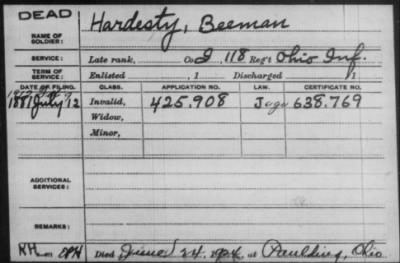 DEAD
NAME OF SOLDIER: Hardesty, Beeman
SERVICE: Late rank, Co I, 118 Reg't Ohio Inf.
TERM OF SERVICE: Enlisted , 1 Discharged , 1
DATE OF FILING. CLASS. APPLICATION NO. LAW. CERTIFICATE NO.
1881 July 12 Invalid, 425.908 638.769
Widow,
Minor,
ADDITIONAL SERVICES:
REMARKS:
Died June 24, 1924, at Paulding, Ohio